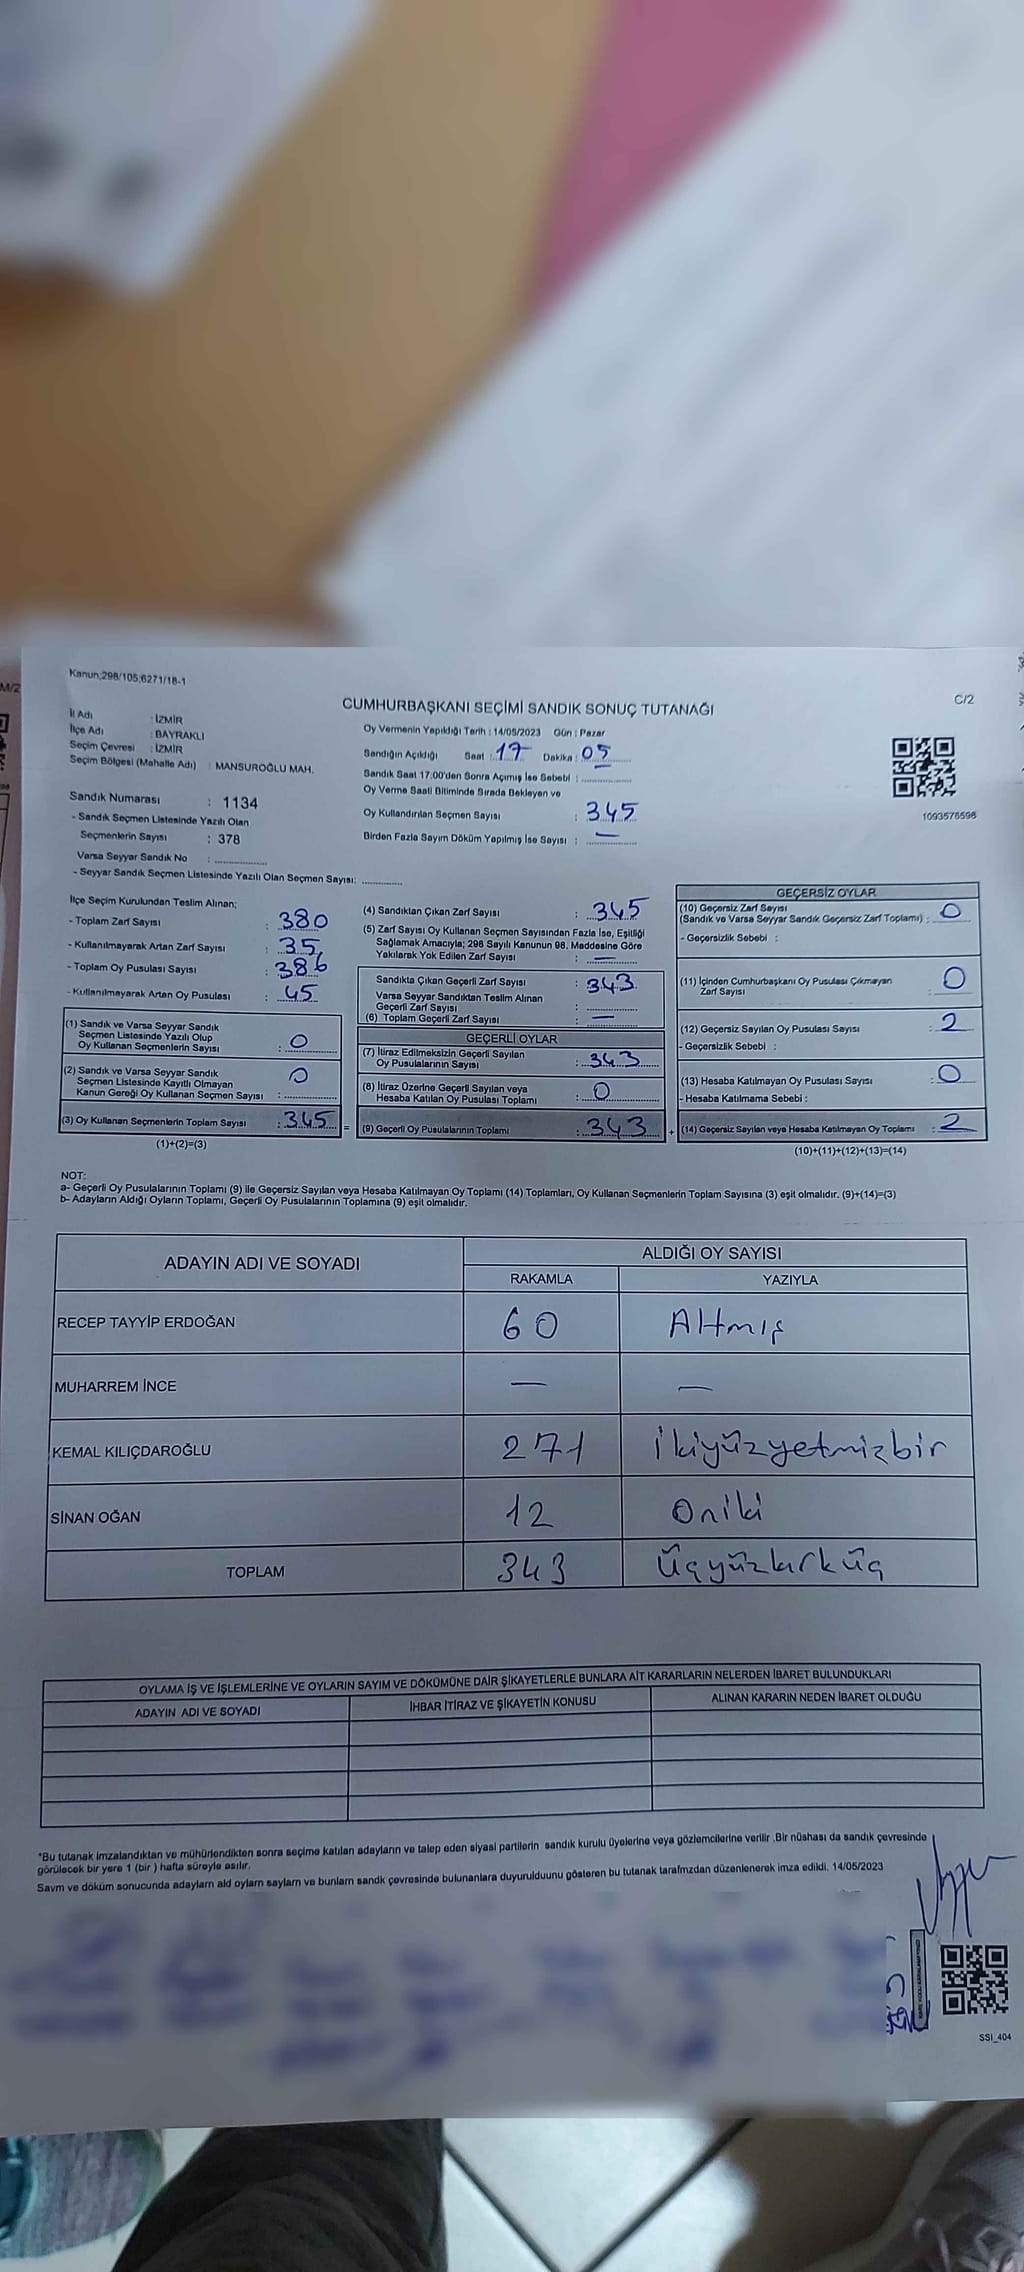 Kanun;298/105;6271/18-1
CUMHURBAŞKANI SEÇİMİ SANDIK SONUÇ TUTANAĞI
C/2
M/2
İl Adı : İZMİR
İlçe Adı : BAYRAKLI
Seçim Çevresi : İZMİR
Seçim Bölgesi (Mahalle Adı) : MANSUROĞLU MAH.
Sandık Numarası : 1134
- Sandık Seçmen Listesinde Yazılı Olan
Seçmenlerin Sayısı : 378
Varsa Seyyar Sandık No :
- Seyyar Sandık Seçmen Listesinde Yazılı Olan Seçmen Sayısı:
Oy Vermenin Yapıldığı Tarih : 14/05/2023 Gün : Pazar
Sandığın Açıldığı Saat : 17 Dakika : 05
Sandık Saat 17:00'den Sonra Açılmış İse Sebebi :
Oy Verme Saati Bitiminde Sırada Bekleyen ve
Oy Kullandırılan Seçmen Sayısı : 345
Birden Fazla Sayım Döküm Yapılmış İse Sayısı : —
1093576598
İlçe Seçim Kurulundan Teslim Alınan;
- Toplam Zarf Sayısı : 380
- Kullanılmayarak Artan Zarf Sayısı : 35
- Toplam Oy Pusulası Sayısı : 386
- Kullanılmayarak Artan Oy Pusulası : 45
(1) Sandık ve Varsa Seyyar Sandık
Seçmen Listesinde Yazılı Olup
Oy Kullanan Seçmenlerin Sayısı : 0
(2) Sandık ve Varsa Seyyar Sandık
Seçmen Listesinde Kayıtlı Olmayan
Kanun Gereği Oy Kullanan Seçmen Sayısı : 0
(3) Oy Kullanan Seçmenlerin Toplam Sayısı : 345 =
(1)+(2)=(3)
(4) Sandıktan Çıkan Zarf Sayısı : 345
(5) Zarf Sayısı Oy Kullanan Seçmen Sayısından Fazla İse, Eşitliği
Sağlamak Amacıyla; 298 Sayılı Kanunun 98. Maddesine Göre
Yakılarak Yok Edilen Zarf Sayısı : —
Sandıkta Çıkan Geçerli Zarf Sayısı : 343
Varsa Seyyar Sandıktan Teslim Alınan
Geçerli Zarf Sayısı :
(6) Toplam Geçerli Zarf Sayısı : —
GEÇERLİ OYLAR
(7) İtiraz Edilmeksizin Geçerli Sayılan
Oy Pusulalarının Sayısı : 343
(8) İtiraz Üzerine Geçerli Sayılan veya
Hesaba Katılan Oy Pusulası Toplamı : 0
(9) Geçerli Oy Pusulalarının Toplamı : 343 +
GEÇERSİZ OYLAR
(10) Geçersiz Zarf Sayısı
(Sandık ve Varsa Seyyar Sandık Geçersiz Zarf Toplamı) : 0
- Geçersizlik Sebebi :
(11) İçinden Cumhurbaşkanı Oy Pusulası Çıkmayan
Zarf Sayısı : 0
(12) Geçersiz Sayılan Oy Pusulası Sayısı : 2
- Geçersizlik Sebebi :
(13) Hesaba Katılmayan Oy Pusulası Sayısı : 0
- Hesaba Katılmama Sebebi :
(14) Geçersiz Sayılan veya Hesaba Katılmayan Oy Toplamı : 2
(10)+(11)+(12)+(13)=(14)
NOT:
a- Geçerli Oy Pusulalarının Toplamı (9) ile Geçersiz Sayılan veya Hesaba Katılmayan Oy Toplamı (14) Toplamları, Oy Kullanan Seçmenlerin Toplam Sayısına (3) eşit olmalıdır. (9)+(14)=(3)
b- Adayların Aldığı Oyların Toplamı, Geçerli Oy Pusulalarının Toplamına (9) eşit olmalıdır.
ADAYIN ADI VE SOYADI
ALDIĞI OY SAYISI
RAKAMLA YAZIYLA
RECEP TAYYİP ERDOĞAN 60 Altmış
MUHARREM İNCE — —
KEMAL KILIÇDAROĞLU 271 ikiyüzyetmizbir
SİNAN OĞAN 12 Oniki
TOPLAM 343 Üçyüzkırküç
OYLAMA İŞ VE İŞLEMLERİNE VE OYLARIN SAYIM VE DÖKÜMÜNE DAİR ŞİKAYETLERLE BUNLARA AİT KARARLARIN NELERDEN İBARET BULUNDUKLARI
ADAYIN ADI VE SOYADI İHBAR İTİRAZ VE ŞİKAYETİN KONUSU ALINAN KARARIN NEDEN İBARET OLDUĞU
*Bu tutanak imzalandıktan ve mühürlendikten sonra seçime katılan adayların ve talep eden siyasi partilerin sandık kurulu üyelerine veya gözlemcilerine verilir .Bir nüshası da sandık çevresinde
görülecek bir yere 1 (bir ) hafta süreyle asılır.
Sayım ve döküm sonucunda adayların ald oyların sayların ve bunların sandk çevresinde bulunanlara duyurulduunu gösteren bu tutanak tarafmzdan düzenlenerek imza edildi. 14/05/2023
SSI_404